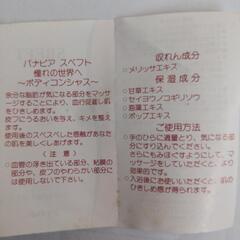 パナピア スベフト
憧れの世界へ
～ボディコンシャス～
余分な脂肪が気になる部分をマッ
サージすることにより、血行促進し肌
をひきしめます。
皮フにうるおいを与え、キメを整え
ます。
使用後のスベスベした感触があなた
の肌を美しくあげます。
（注意）
○血管の浮き出ている部分、粘膜の
部分や、皮フのやわらかい部分に
は使用しないで下さい。
収れん成分
○メリッサエキス
保湿成分
○甘草エキス
○セイヨウノコギリソウ
○蕃薬エキス
○ホップエキス
ご使用方法
○手のひらに適量とり、気になる部分
にすり込んでください。
さらにもみほぐすようにして、マッサ
ージすると効果的です。
○入浴後にお使いいただくと、肌の
ひきしめ感が得られます。